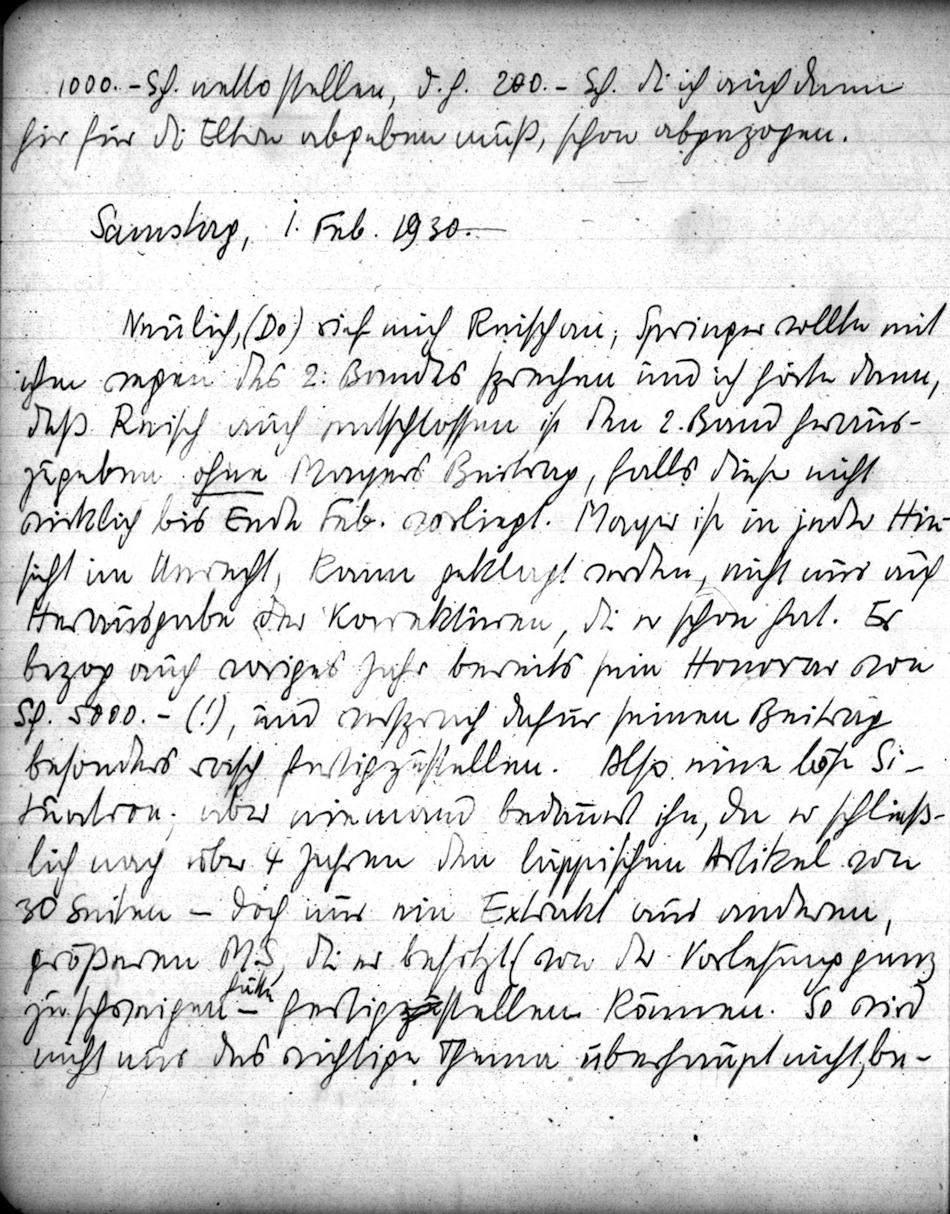 1000.- Sh. netto stellen, d.h. 200.- Sh. die ich auch dann
hier für die Eltern abgeben muß, schon abgezogen.
Samstag, 1. Feb. 1930.
Neulich, (Do) rief mich Reisch an, Springer wollte mit
ihm wegen des 2. Bandes sprechen und ich hörte dann,
daß Reisch auch entschlossen ist den 2. Band heraus-
zugeben ohne Mayers Beitrag, falls dieser nicht
wirklich bis Ende Feb. vorliegt. Mayer ist in jeder Hin-
sicht im Unrecht, kann geklagt werden, nicht nur auf
Herausgabe der Korrekturen, die er schon hat. Er
bezog auch voriges Jahr bereits sein Honorar von
Sh. 5000.- (!), und versprach dafür seinen Beitrag
besonders rasch fertigzustellen. Also eine böse Si-
tuation; aber niemand bedauert ihn, da er schließ-
lich nach über 4 Jahren den läppischen Artikel von
30 Seiten – doch nur ein Extrakt aus anderen,
größeren M.S, die er besitzt (von der Vorlesung ganz
zu schweigen – hätte fertigstellen können. So wird
nicht nur das wichtige Thema überhaupt nicht, be-